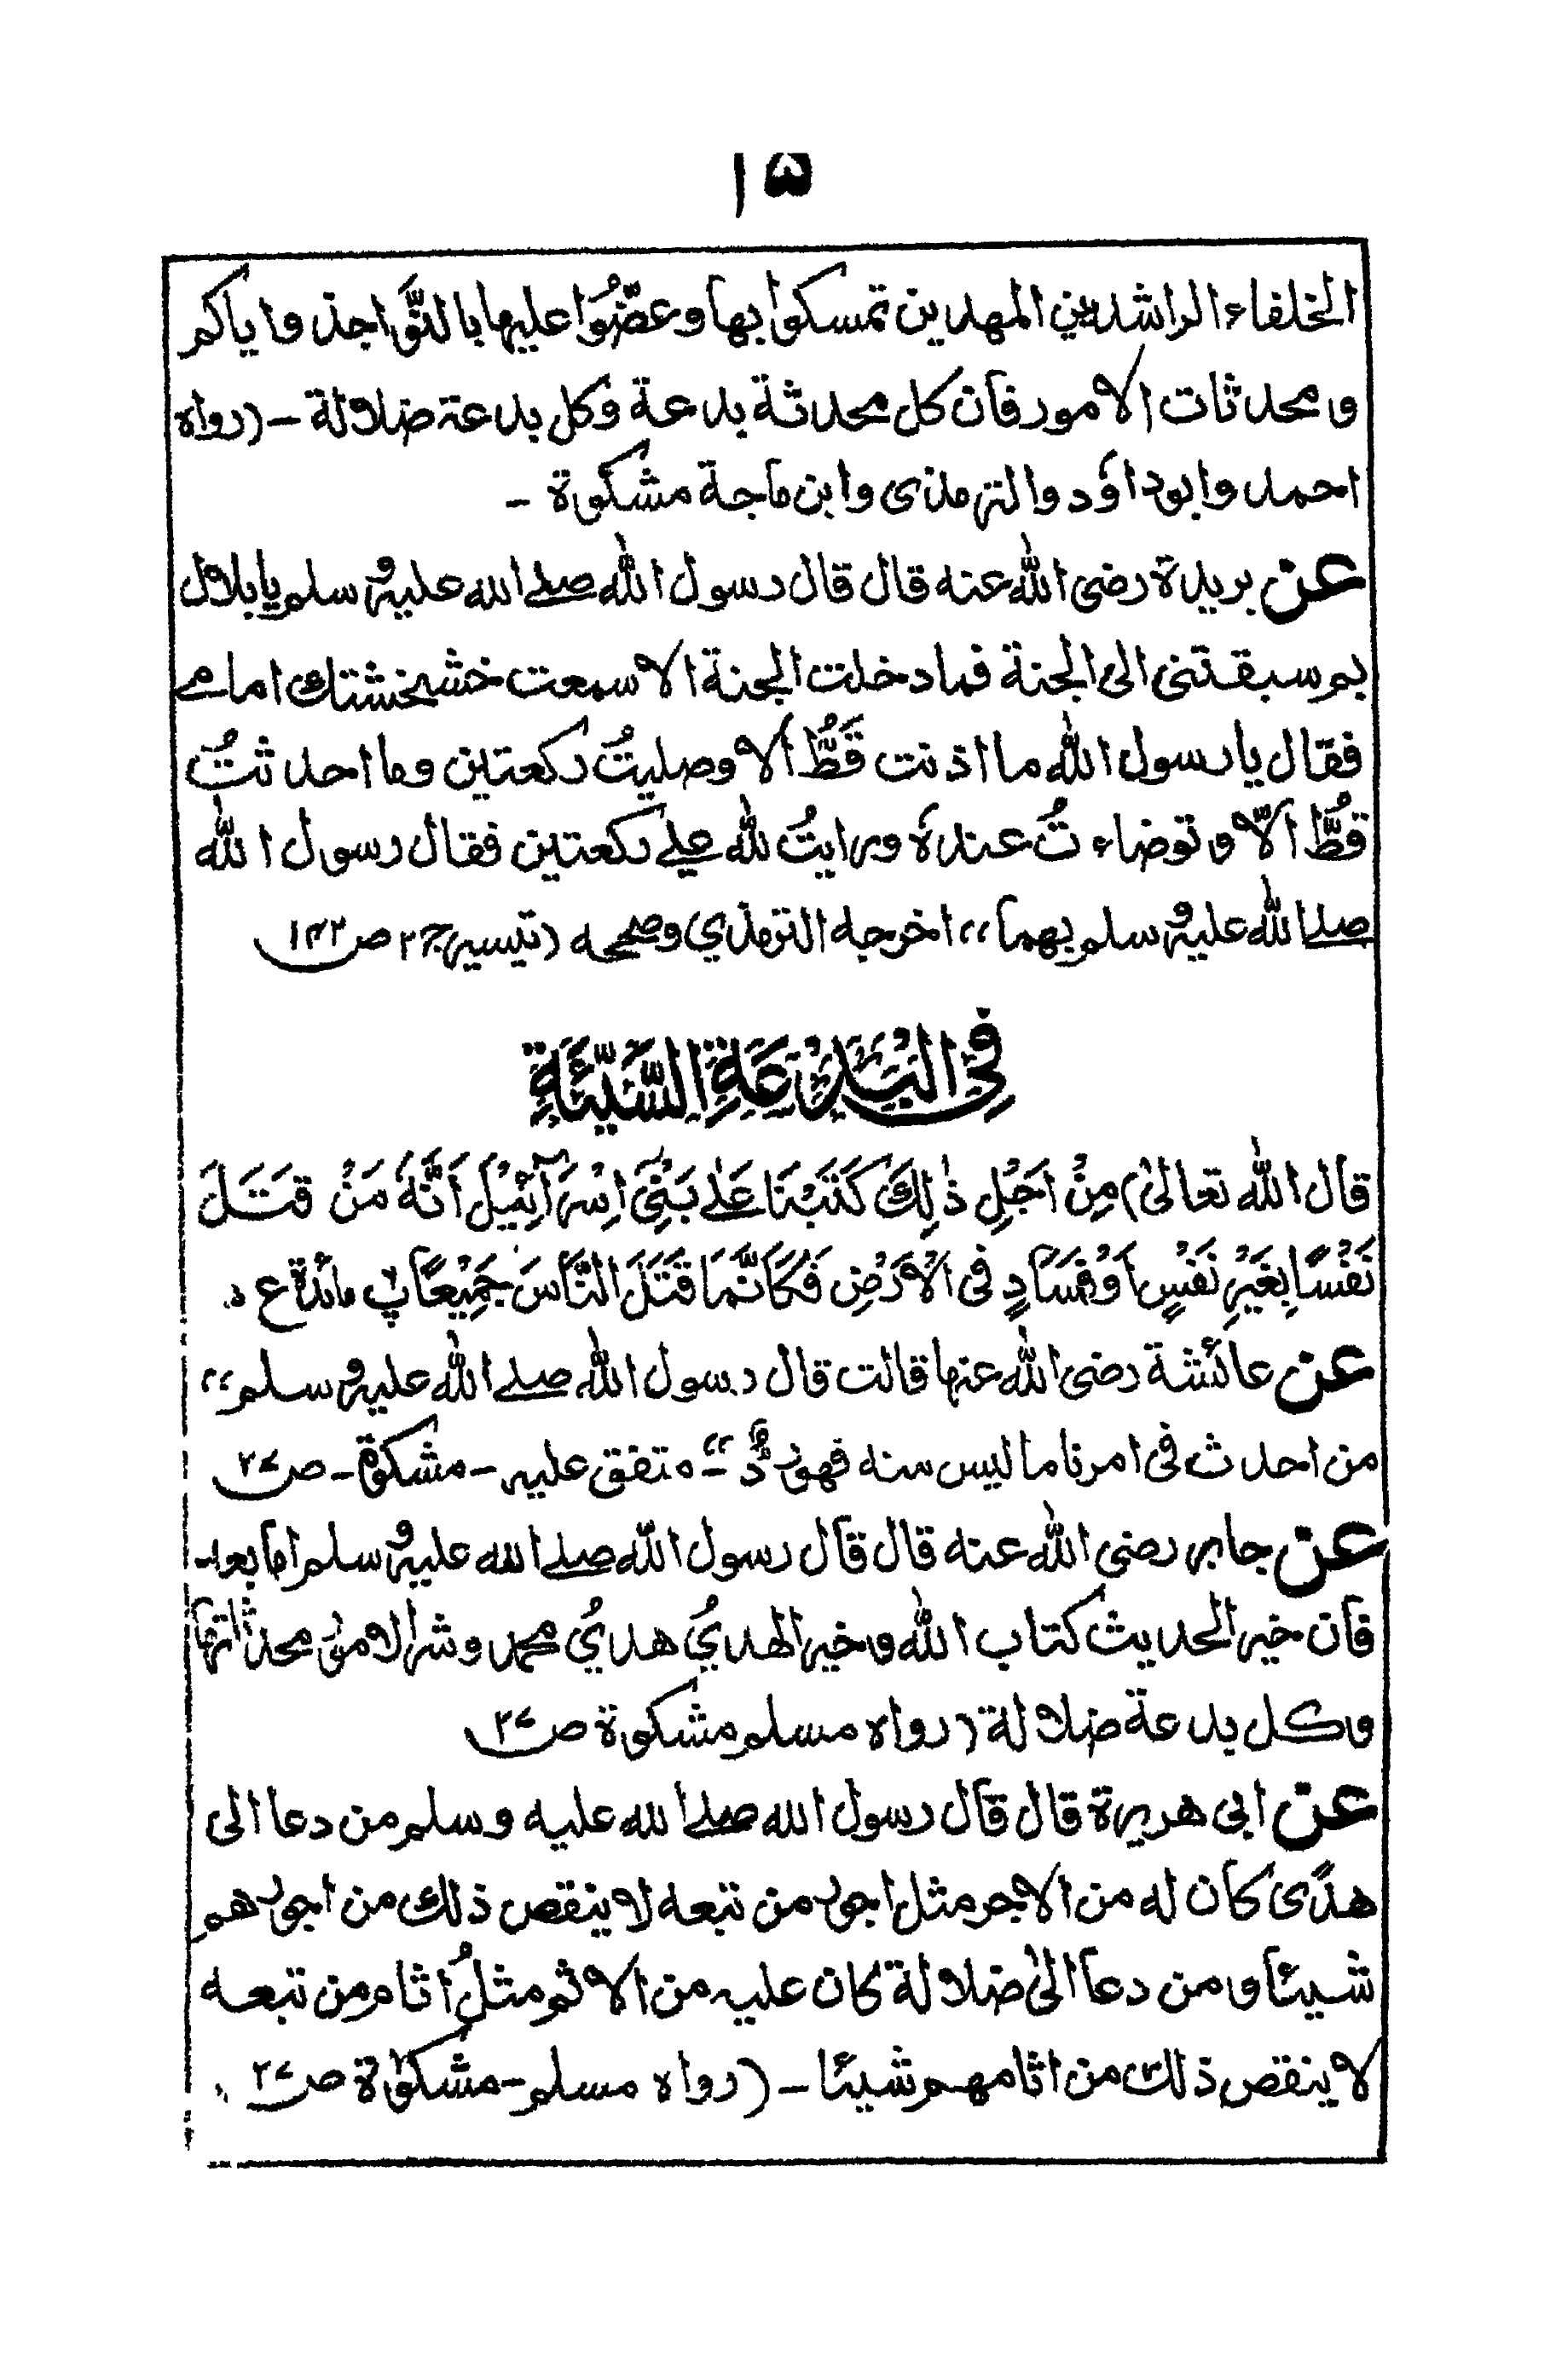 ۱۵
الخلفاء الراشدين المهدين تمسكوا بها وعضّوُا عليها بالنَّواجذ وایاکم
ومحدثات الامور فان كل محدثة بدعة وكل بدعة ضلالة - (رواه
احمد وابوداؤد والترمذی وابن ماجة مشکوة -
عن بریدة رضی الله عنه قال قال رسول الله صلے الله علیه و سلم یا بلال
بم سبقتنی الی الجنة فما دخلت الجنة الا سمعت خشخشتك امامے
فقال یا رسول الله ما اذنت قَطُّ الا وصلیتُ رکعتین وما احدثتُ
قطُّ الّا و توضاءتُ عندهٗ ورایتُ لله علے رکعتین فقال رسول الله
صلے الله علیه و سلم بهما،، اخرجه الترمذي وصححه (تیسیر ج۲ ص۱۴۲
فِي الْبِدْعَةِ السَّيِّئَةِ
قال الله تعالیٰ) مِنْ اَجَلِ ذٰلِكَ كَتَبْنَا عَلٰے بَنِیْ اِسْرَآئِیْلَ اَنَّهٗ مَنْ قَتَلَ
نَفْسًا بِغَیْرِ نَفْسٍ اَوْ فَسَادٍ فی الْاَرْضِ فَكَاَنَّمَا قَتَلَ النَّاسَ جَمِیْعًا پ مائدة ع
عن عائشة رضی الله عنها قالت قال رسول الله صلے الله علیه و سلم،،
من احدث فی امرنا ما لیس منه فهو ردٌّ ،،- متفق علیه - مشکوة - ص۲۷
عن جابر رضی الله عنه قال قال رسول الله صلے الله علیه و سلم اما بعد-
فان خیر الحدیث کتاب الله و خیر الهديُ هديُ محمد و شر الامور محدثاتها
وکل بدعة ضلالة (رواه مسلم مشکوة ص۲۷
عن ابی هریرة قال قال رسول الله صلے الله علیه وسلم من دعا الی
هدًی کان له من الاجر مثل اجور من تبعه لا ینقص ذلك من اجورهم
شیئا و من دعا الیٰ ضلالة کان علیه من الاثم مثلُ اثام من تبعه
لا ینقص ذلك من اثامهم شیئا - (رواه مسلم - مشکوٰة ص۲۷